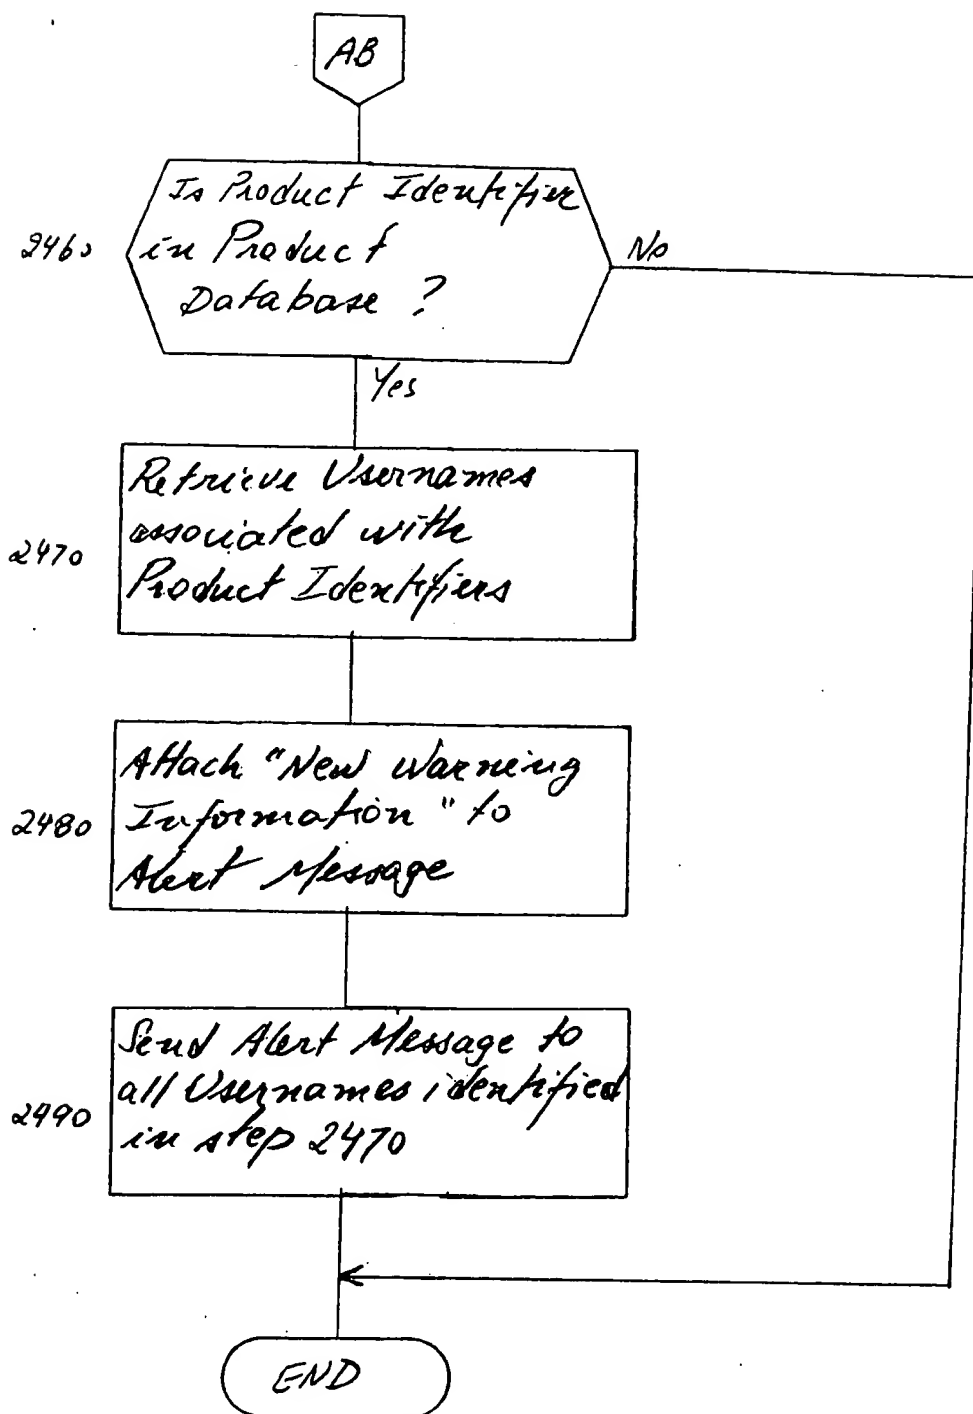 AB
2460
Is Product Identifier
in Product
Database ?
No
Yes
2470
Retrieve Usernames
associated with
Product Identifiers
2480
Attach "New Warning
Information" to
Alert Message
2490
Send Alert Message to
all Usernames identified
in step 2470
END